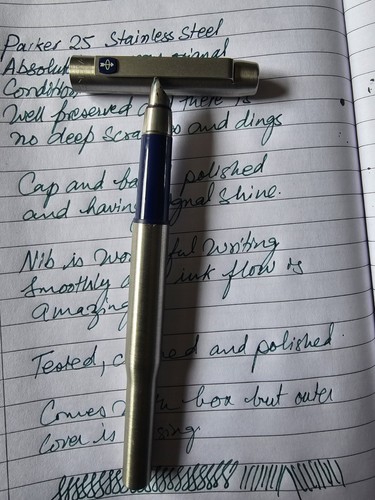 Parker 25 Stainless Steel
Absolu original
Condition
Well preserved there is
no deep scra s and dings
Cap and ba polished
and having nal shine.
Nib is wo ful writing
Smoothly ink flow is
amazing
Tested, c ed and polished.
Comes box but outer
cover is sing